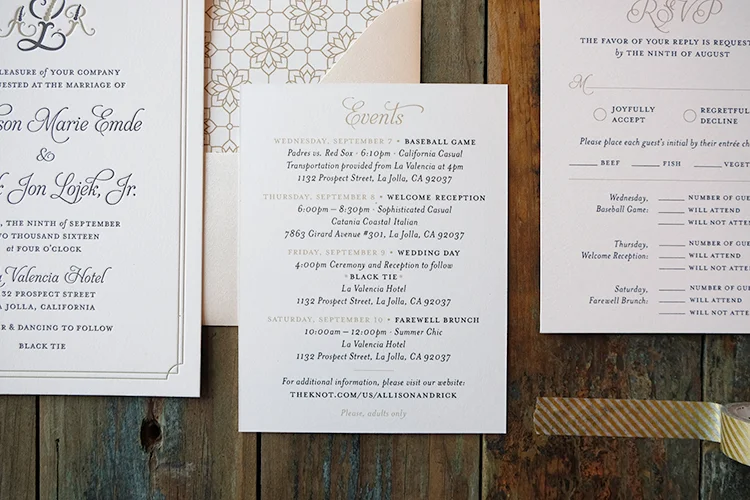 ALR
PLEASURE of YOUR COMPANY
AT THE MARRIAGE OF
Marie Emde
&
Jon Lojek, Jr.
THE NINTH OF SEPTEMBER
THOUSAND SIXTEEN
at FOUR O'CLOCK
Valencia Hotel
PROSPECT STREET
JOLLA, CALIFORNIA
& DANCING TO FOLLOW
BLACK TIE
Events
WEDNESDAY, SEPTEMBER 7 • BASEBALL GAME
Padres vs. Red Sox · 6:10pm · California Casual
Transportation provided from La Valencia at 4pm
1132 Prospect Street, La Jolla, CA 92037
THURSDAY, SEPTEMBER 8 • WELCOME RECEPTION
6:00pm – 8:30pm · Sophisticated Casual
Catania Coastal Italian
7863 Girard Avenue #301, La Jolla, CA 92037
FRIDAY, SEPTEMBER 9 • WEDDING DAY
4:00pm Ceremony and Reception to follow
*BLACK TIE*
La Valencia Hotel
1132 Prospect Street, La Jolla, CA 92037
SATURDAY, SEPTEMBER 10 • FAREWELL BRUNCH
10:00am – 12:00pm · Summer Chic
La Valencia Hotel
1132 Prospect Street, La Jolla, CA 92037
For additional information, please visit our website:
THEKNOT.COM/US/ALLISONANDRICK
Please, adults only
RSVP
THE FAVOR OF YOUR REPLY IS
by THE NINTH OF AUGUST
M
JOYFULLY ACCEPT
REGRETFULLY DECLINE
Please place each guest's initial by their entrée
BEEF FISH
Wednesday, Baseball Game:
NUMBER OF
WILL ATTEND
WILL NOT ATTEND
Thursday, Welcome Reception:
NUMBER OF
WILL ATTEND
WILL NOT ATTEND
Saturday, Farewell Brunch:
NUMBER OF
WILL ATTEND
WILL NOT ATTEND